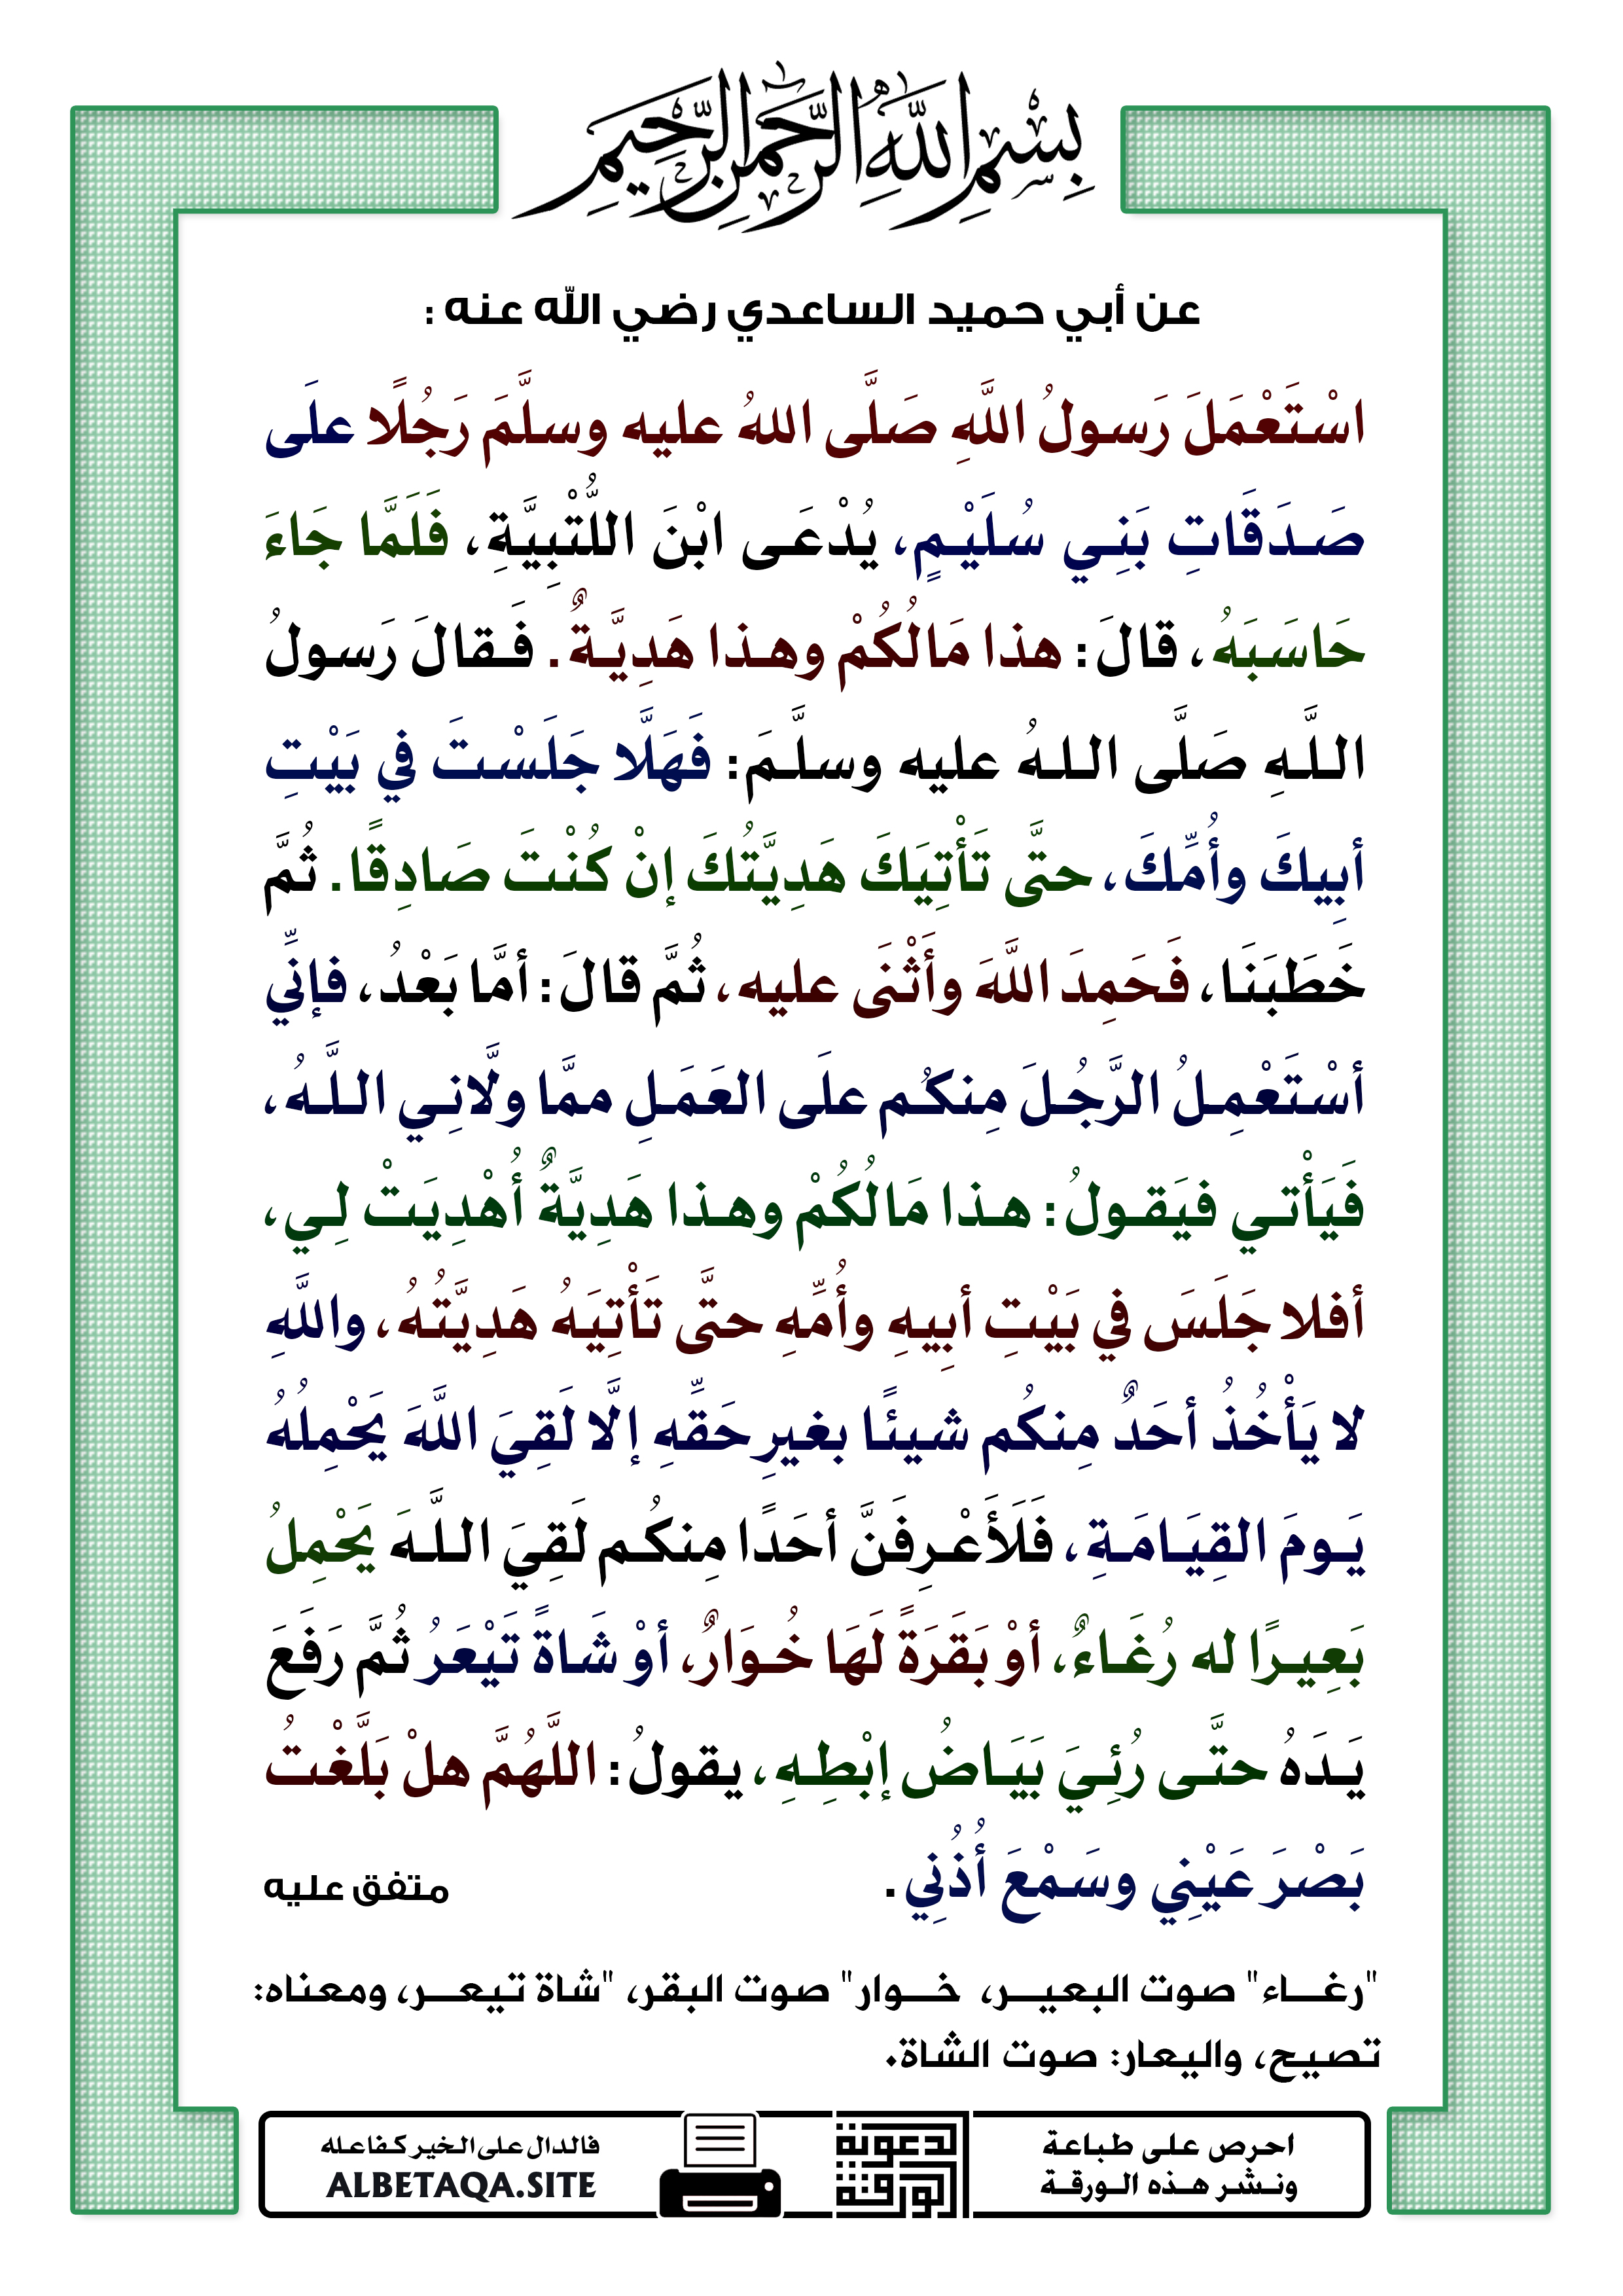 بِسْمِ اللَّهِ الرَّحْمَٰنِ الرَّحِيمِ
عن أبي حميد الساعدي رضي الله عنه :
اسْتَعْمَلَ رَسولُ اللَّهِ صَلَّى اللهُ عليه وسلَّمَ رَجُلًا علَى
صَدَقَاتِ بَنِي سُلَيْمٍ، يُدْعَى ابْنَ اللُّتْبِيَّةِ، فَلَمَّا جَاءَ
حَاسَبَهُ، قالَ: هذا مَالُكُمْ وهذا هَدِيَّةٌ. فَقالَ رَسولُ
اللَّهِ صَلَّى اللهُ عليه وسلَّمَ: فَهَلَّا جَلَسْتَ في بَيْتِ
أبِيكَ وأُمِّكَ، حتَّى تَأْتِيَكَ هَدِيَّتُكَ إنْ كُنْتَ صَادِقًا. ثُمَّ
خَطَبَنَا، فَحَمِدَ اللَّهَ وأَثْنَى عليه، ثُمَّ قالَ: أمَّا بَعْدُ، فإنِّي
أسْتَعْمِلُ الرَّجُلَ مِنكُم علَى العَمَلِ ممَّا ولَّانِي اللَّهُ،
فَيَأْتي فيَقولُ: هذا مَالُكُمْ وهذا هَدِيَّةٌ أُهْدِيَتْ لِي،
أفلا جَلَسَ في بَيْتِ أبِيهِ وأُمِّهِ حتَّى تَأْتِيَهُ هَدِيَّتُهُ، واللَّهِ
لا يَأْخُذُ أحَدٌ مِنكُم شيئًا بغيرِ حَقِّهِ إلَّا لَقِيَ اللَّهَ يَحْمِلُهُ
يَومَ القِيَامَةِ، فَلَأَعْرِفَنَّ أحَدًا مِنكُم لَقِيَ اللَّهَ يَحْمِلُ
بَعِيرًا له رُغَاءٌ، أوْ بَقَرَةً لَهَا خُوَارٌ، أوْ شَاةً تَيْعَرُ ثُمَّ رَفَعَ
يَدَهُ حتَّى رُئِيَ بَيَاضُ إبْطِهِ، يقولُ: اللَّهُمَّ هلْ بَلَّغْتُ
بَصْرَ عَيْنِي وسَمْعَ أُذُنِي.
متفق عليه
"رغاء" صوت البعير، خوار" صوت البقر، "شاة تيعر، ومعناه:
تصيح، واليعار: صوت الشاة.
احرص على طباعة
ونشر هذه الورقة
الورقة
الدعوية
فالدال على الخير كفاعله
ALBETAQA.SITE